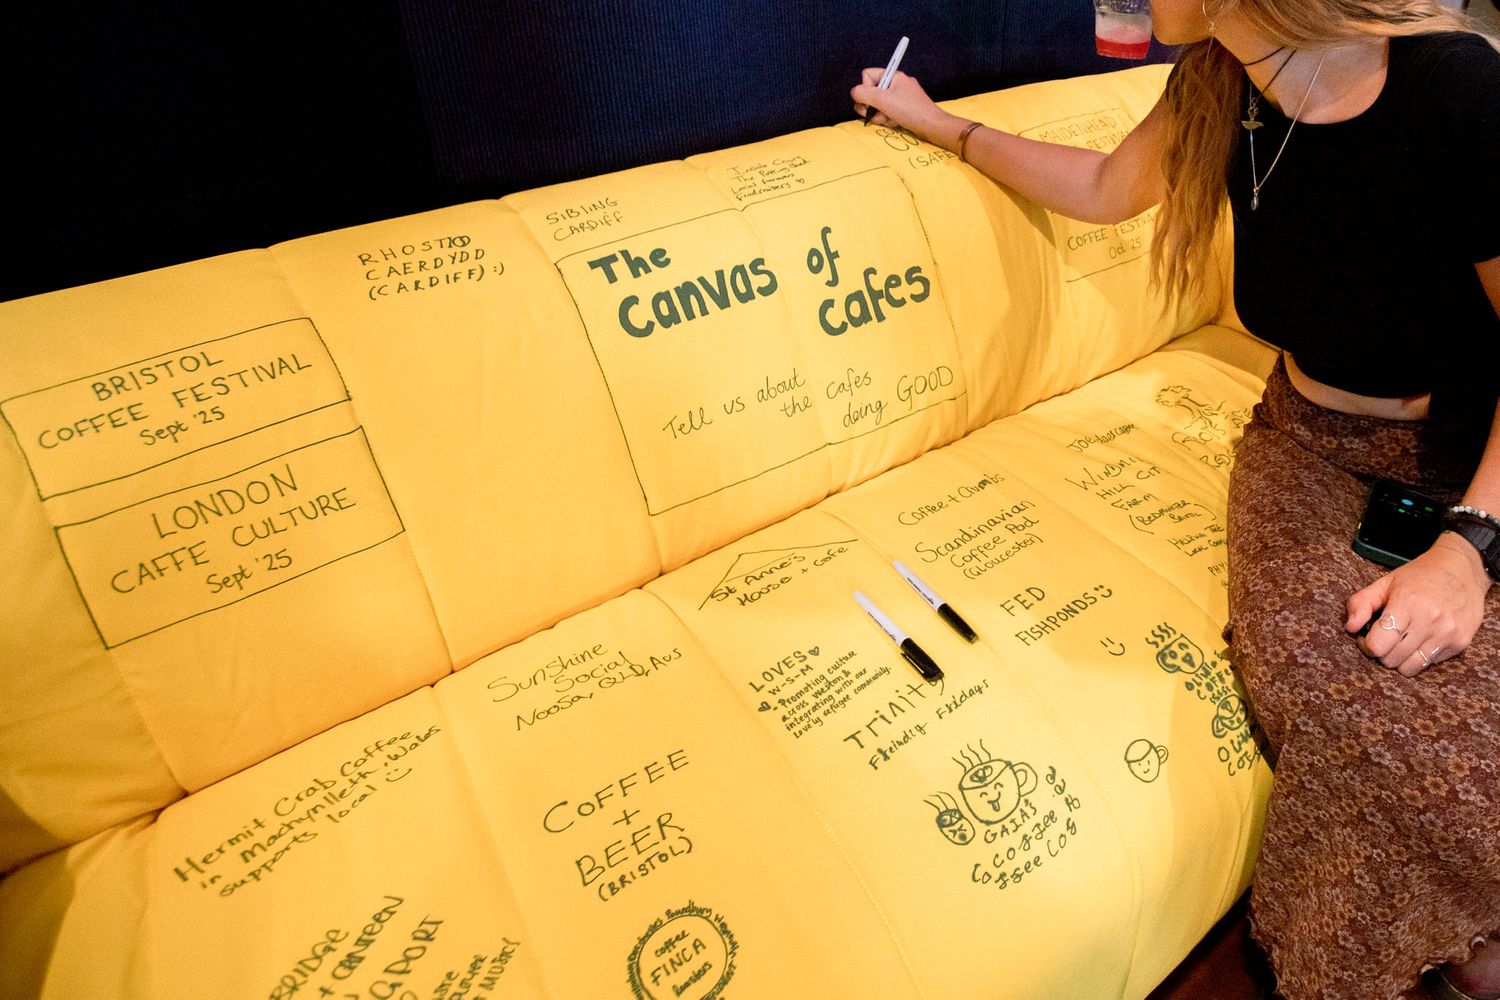 BRISTOL
COFFEE FESTIVAL
Sept '25
LONDON
CAFFE CULTURE
Sept '25
RHOSTIO
CAERDYDD
(CARDIFF) :)
SIBLING
CARDIFF
Inside Cosy
The Potting Shed
Local farmers
Fundraisers
The
Canvas of
cafes
Tell us about
the cafes
doing GOOD
(SAFE
MAIDENHEAD
FESTIV
COFFEE FESTIV
Oct 25
Hermit Crab Coffee
in Machynlleth, Wales
supports local
Sunshine
Social
Noosa, QLD, Aus
COFFEE
+
BEER
(BRISTOL)
BRIDGE
+ CANTEEN
GPORT
MUSIC)
Roundbury
coffee
FINCA
Roasters
St Anne's
House + Cafe
LOVES
W-S-M
Promoting culture
across Weston &
integrating with our
lovely refugee community.
Trinity
Friendly Fridays
GAIA'S
COFFEE
COFFEE
Coffee + Crumbs
Scandinavian
Coffee Pod
(Gloucester)
FED
FISHPONDS
JOE
Coffee
WINDMILL
HILL CITY
FARM
(BEDMINSTER
Helping the
Local Com
PHY